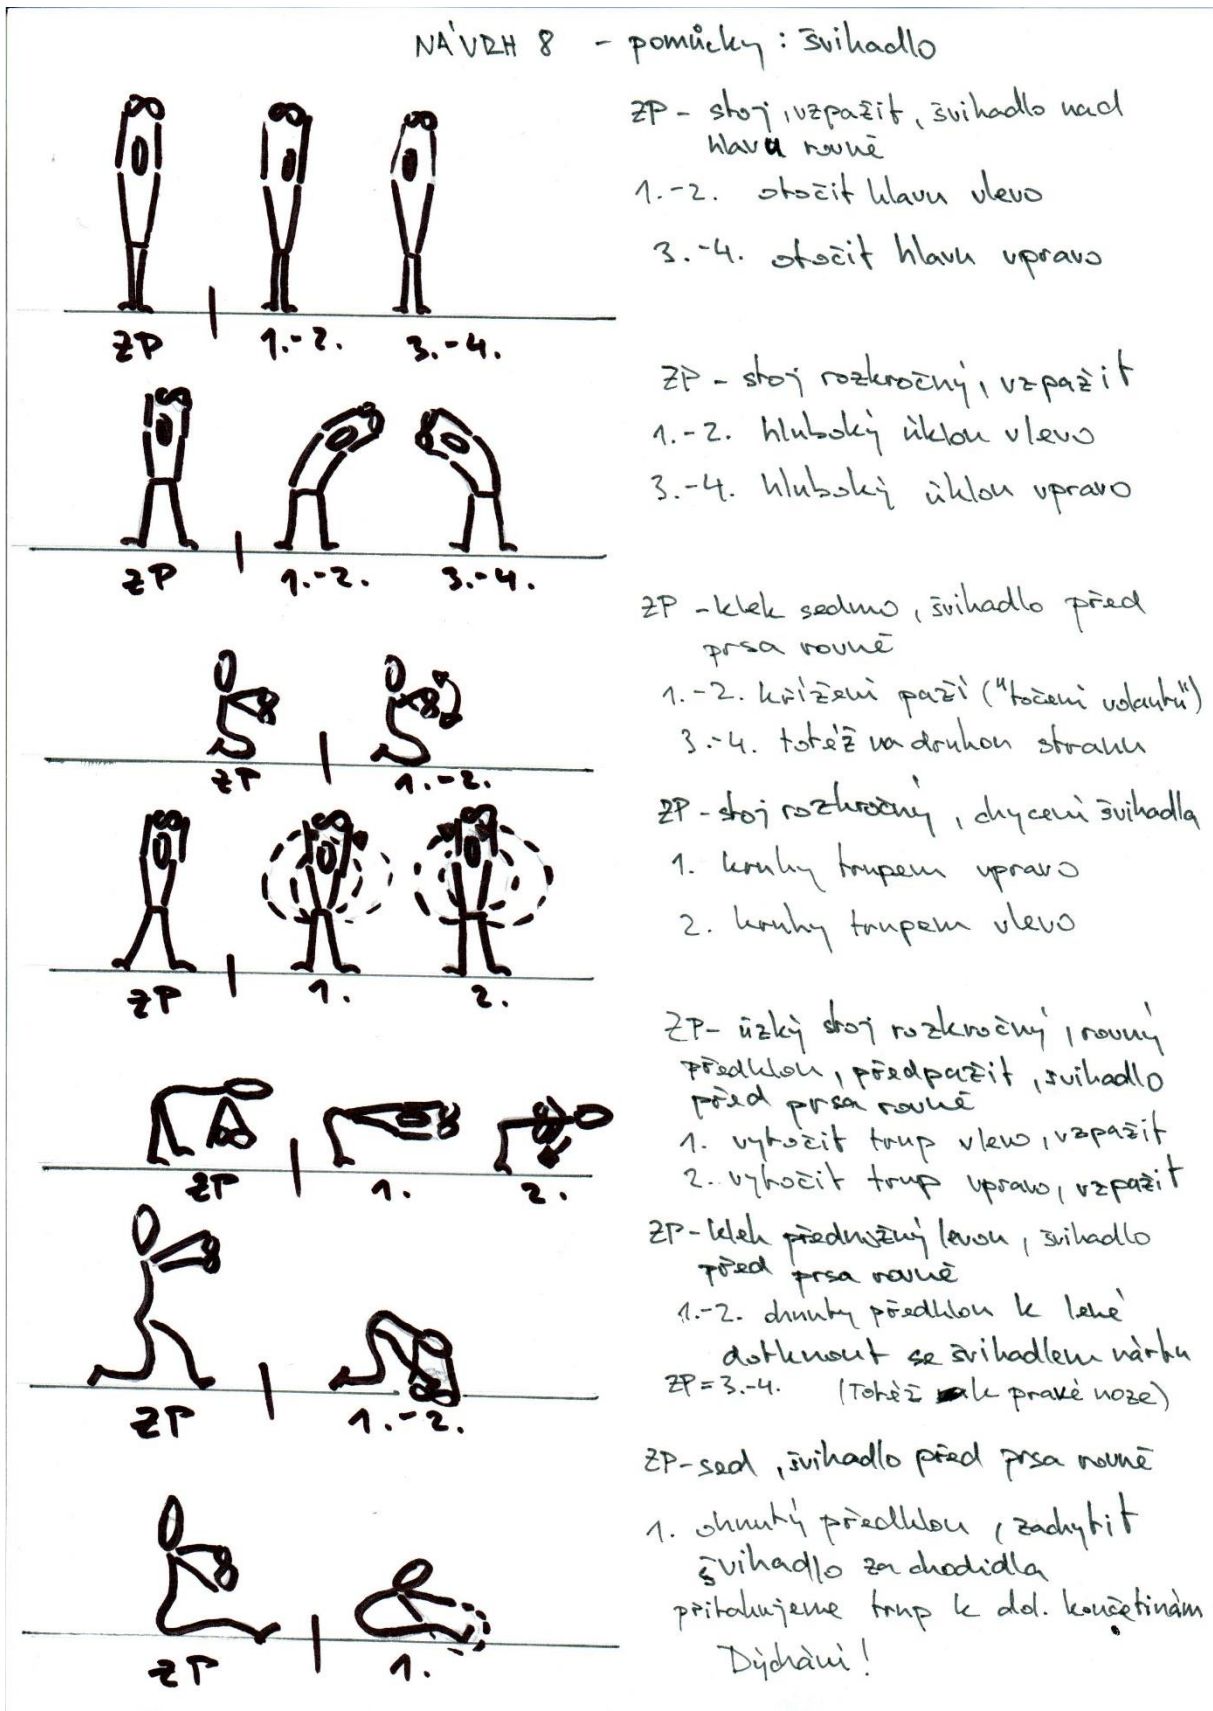 NÁVRH 8 - pomůcky : švihadlo
ZP - stoj, vzpažit, švihadlo nad
hlavu rovně
1.-2. otočit hlavu vlevo
3.-4. otočit hlavu vpravo
ZP 1.-2. 3.-4.
ZP - stoj rozkročný, vzpažit
1.-2. hluboký úklon vlevo
3.-4. hluboký úklon vpravo
ZP 1.-2. 3.-4.
ZP - klek sedmo, švihadlo před
prsa rovně
1.-2. křížení paží ("točení volantu")
3.-4. totéž na druhou stranu
ZP 1.-2.
ZP - stoj rozkročný, chycení švihadla
1. kruhy trupem vpravo
2. kruhy trupem vlevo
ZP 1. 2.
ZP - úzký stoj rozkročný, rovný
předklon, předpažit, švihadlo
před prsa rovně
1. vytočit trup vlevo, vzpažit
2. vytočit trup vpravo, vzpažit
ZP 1. 2.
ZP - klek přednožný levou, švihadlo
před prsa rovně
1.-2. ohnutý předklon k levé
dotknout se švihadlem nártu
ZP = 3.-4. (Totéž k pravé noze)
ZP 1.-2.
ZP - sed, švihadlo před prsa rovně
1. ohnutý předklon, zachytit
švihadlo za chodidla
přitahujeme trup k dol. končetinám
Dýchání!
ZP 1.